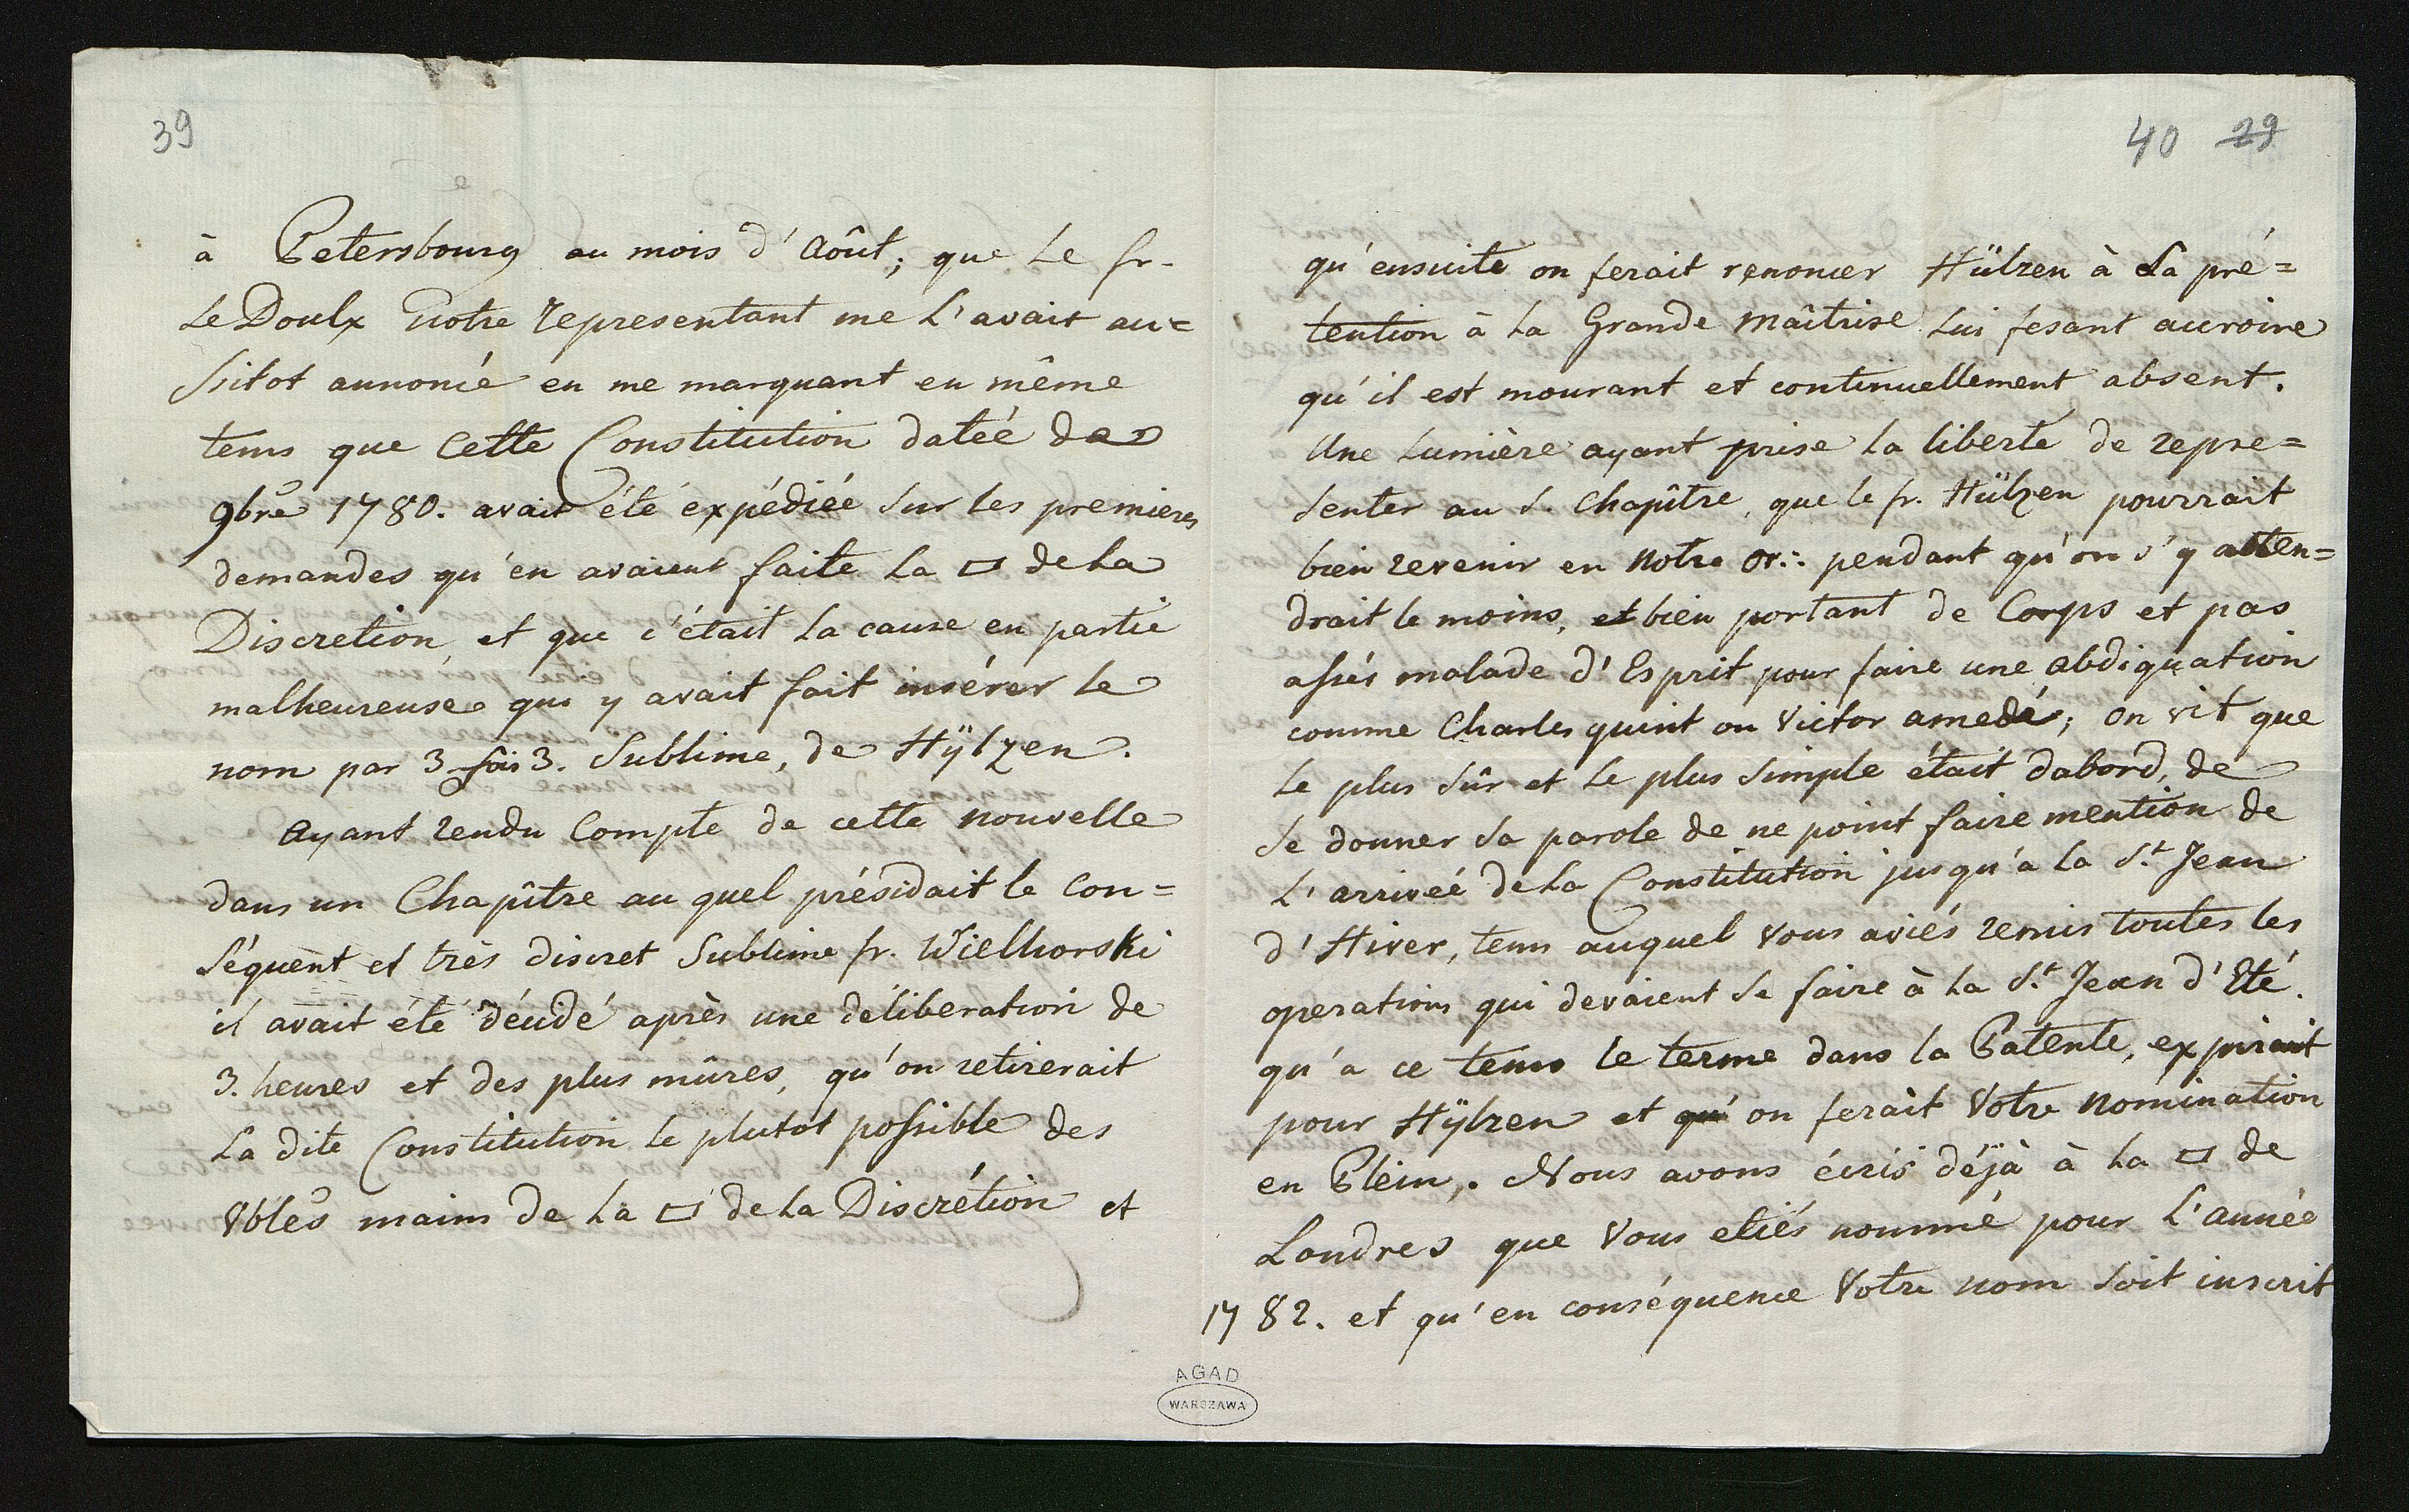 39
à Petersbourg au mois d'Août; que le fr.
Le Doulx notre representant me L'avait au=
ssitot annoncé en me marquant en même
tems que Cette Constitution datéé de
9bre 1780. avait été expédiéé sur les premieres
demandes qu'en avaient faite La ▭ de La
Discretion, et que c'était La cause en partie
malheureuse qui y avait fait insérer le
nom par 3 fois 3. Sublime, de Hÿlzen.
Ayant rendu Compte de cette nouvelle
dans un Chapître au quel présidait le Con=
séquent et très discret Sublime fr. Wielhorski
il avait été décidé après une déliberation de
3. heures et des plus mûres, qu'on retirerait
La dite Constitution le plutot possible des
Vbles mains de La ▭ de La Discrétion et
40 29
qu'ensuite on ferait renoncer Hülzen à La pré=
tention à La Grande Maîtrise Lui fesant accroire
qu'il est mourant et continuellement absent.
Une Lumière ayant prise La liberté de repre=
senter au S. Chapître, que le fr. Hülzen pourrait
bien revenir en Notre Or∴ pendant qu'on s'y atten=
drait le moins, et bien portant de Corps et pas
assés malade d'Esprit pour faire une abdiquation
comme Charles quint ou Victor amedé; on vit que
Le plus sûr et Le plus simple était dabord, de
se donner sa parole de ne point faire mention de
L'arrivéé de La Constitution jusqu'a La St. Jean
d'Hiver, tems auquel Vous aviés remis toutes les
operations qui devaient se faire à La St. Jean d'Eté.
qu'a ce tems le terme dans la Patente, expirait
pour Hÿlzen et qu' on ferait Votre Nomination
en Plein,. Nous avons écris déjà à La ▭ de
Londres que Vous etiés nommé pour L'année
1782. et qu'en conséquence Votre nom soit inscrit
AGAD
WARSZAWA